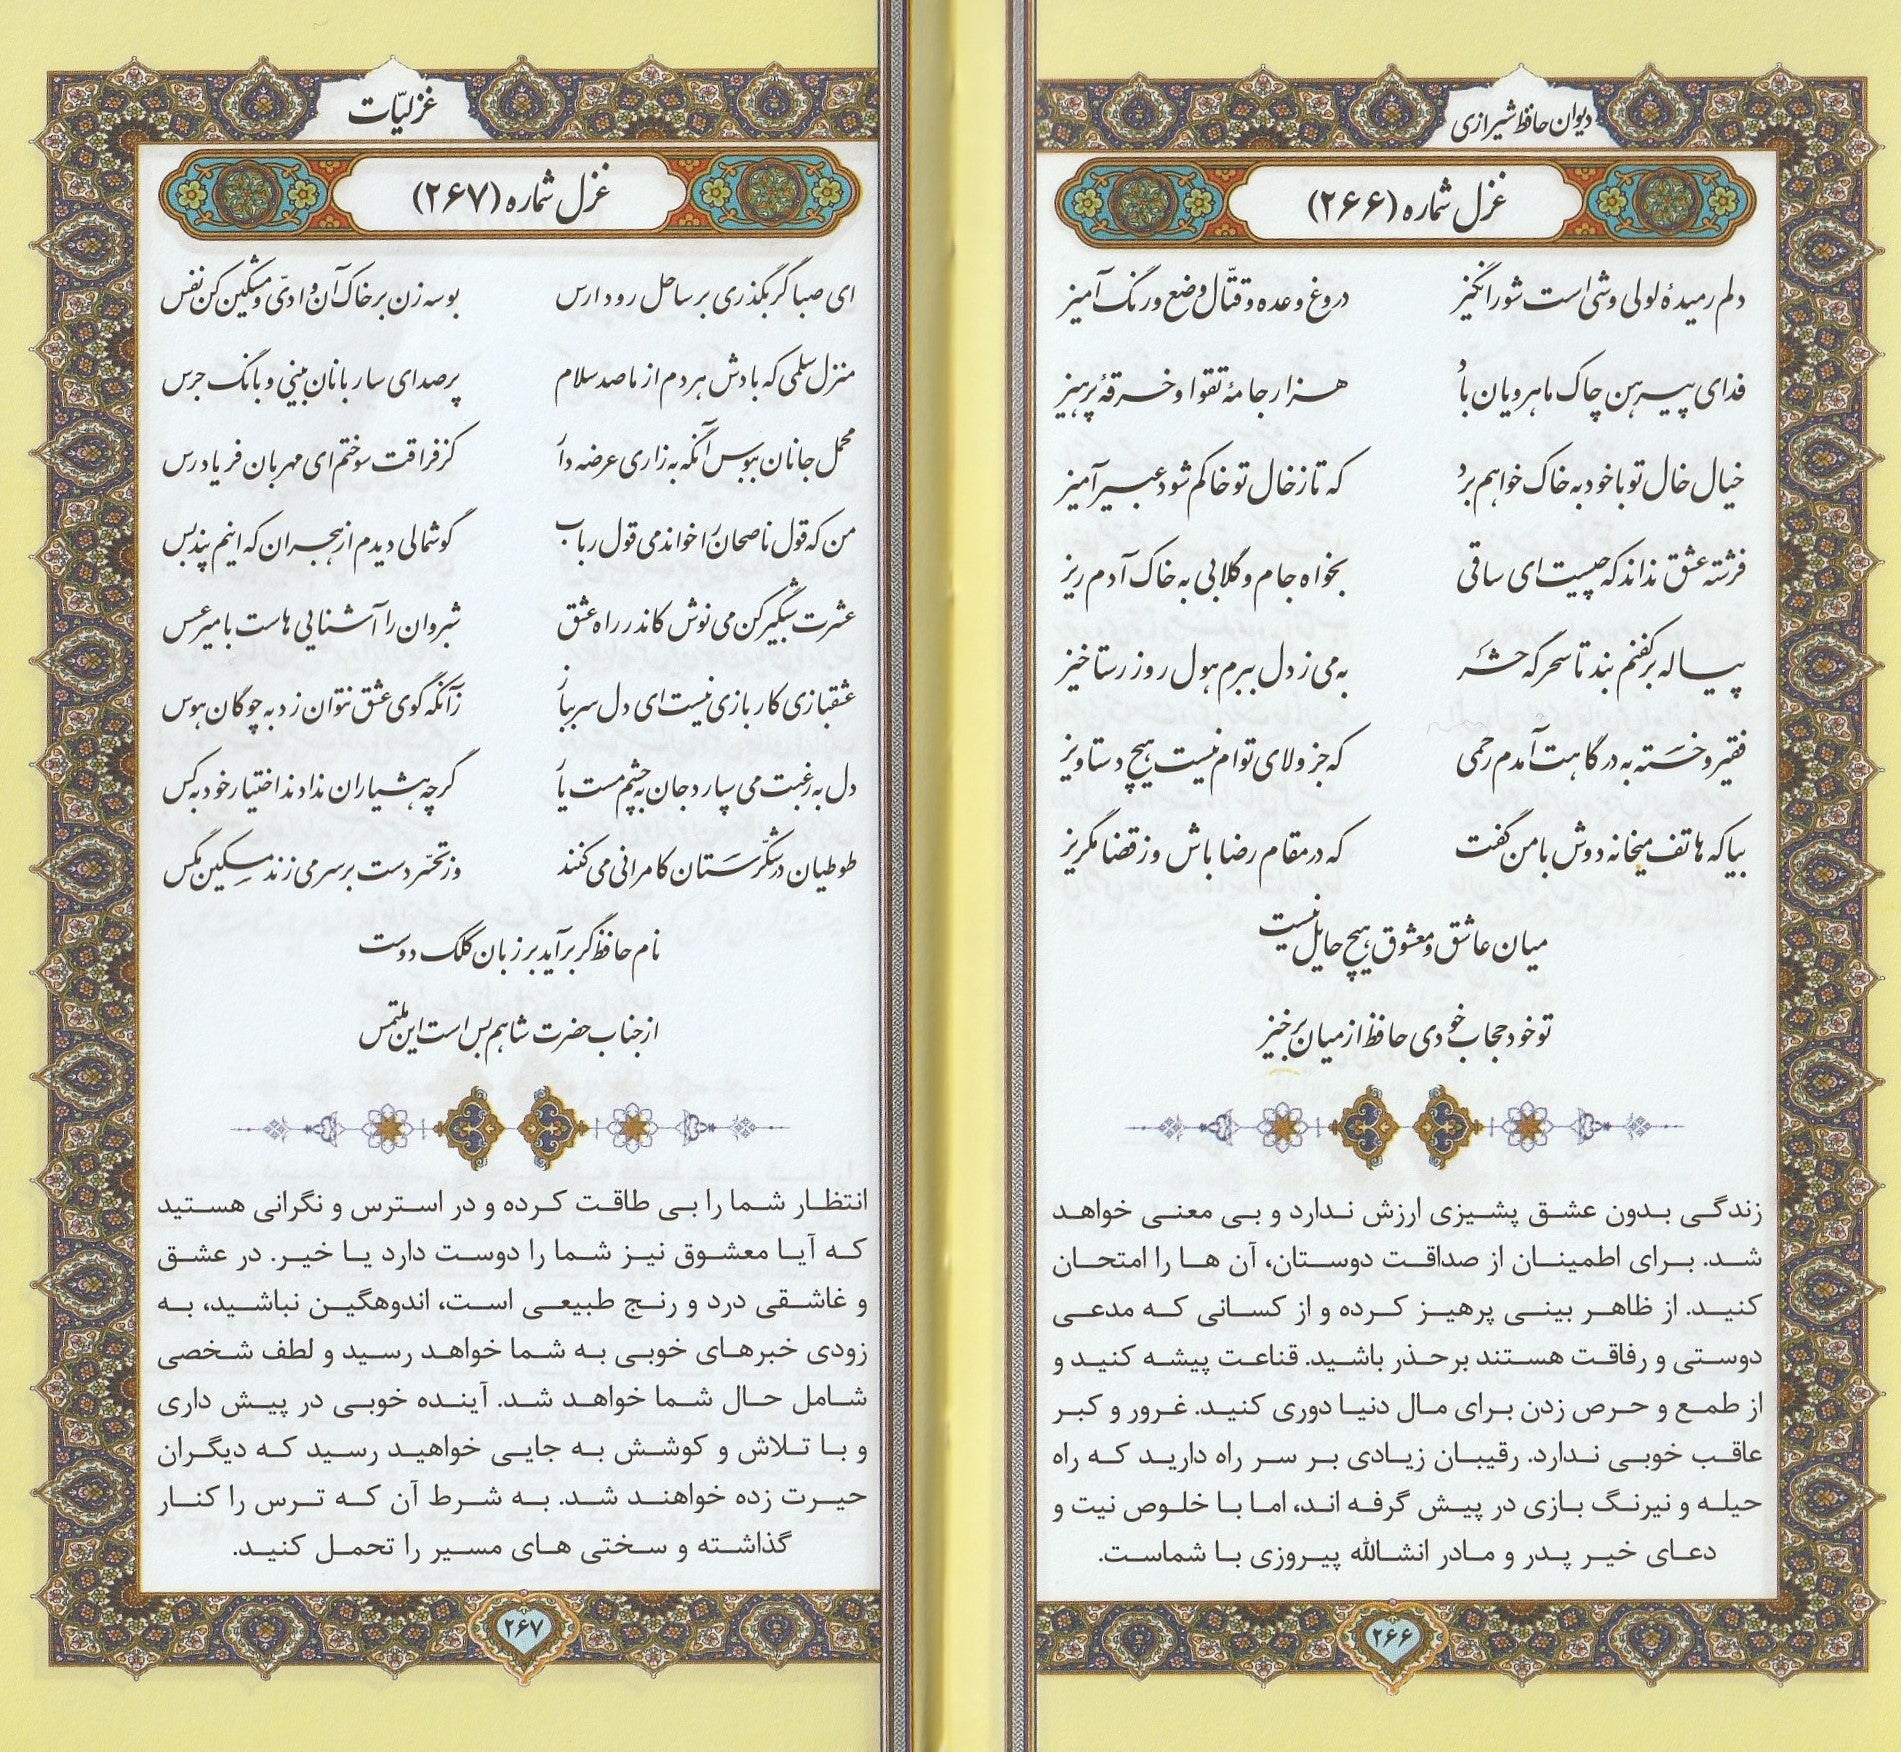 دیوان حافظ شیرازی
غزل شماره (۲۶۶)
دلم رمیدهٔ لولی وشی است شورانگیز دروغ وعده و قتّال وضع و رنگ آمیز
فدای پیرهن چاک ماهرویان باد هزار جامهٔ تقوا و خرقهٔ پرهیز
خیال خال تو با خود به خاک خواهم برد که تا ز خال تو خاکم شود عبیرآمیز
فرشته عشق نداند که چیست ای ساقی بخواه جام و گلابی به خاک آدم ریز
پیاله بر کفنم بند تا سحرگه حشر به می ز دل ببرم هول روز رستاخیز
فقیر و خسته به درگاهت آمدم رحمی که جز ولای توام نیست هیچ دستاویز
بیا که هاتف میخانه دوش با من گفت که در مقام رضا باش وز قضا مگریز
میان عاشق و معشوق هیچ حایل نیست
تو خود حجاب خودی حافظ از میان برخیز
زندگی بدون عشق پشیزی ارزش ندارد و بی معنی خواهد
شد. برای اطمینان از صداقت دوستان، آن ها را امتحان
کنید. از ظاهر بینی پرهیز کرده و از کسانی که مدعی
دوستی و رفاقت هستند برحذر باشید. قناعت پیشه کنید و
از طمع و حرص زدن برای مال دنیا دوری کنید. غرور و کبر
عاقب خوبی ندارد. رقیبان زیادی بر سر راه دارید که راه
حیله و نیرنگ بازی در پیش گرفه اند، اما با خلوص نیت و
دعای خیر پدر و مادر انشالله پیروزی با شماست.
۲۶۶
غزلیّات
غزل شماره (۲۶۷)
ای صبا گر بگذری بر ساحل رود ارس بوسه زن بر خاک آن وادی و مشکین کن نفس
منزل سلمی که بادش هر دم از ما صد سلام پرصدای ساربانان بینی و بانگ جرس
محمل جانان ببوس آنگه به زاری عرضه دار کز فراقت سوختم ای مهربان فریادرس
من که قول ناصحان را خواندمی قول رباب گوشمالی دیدم از هجران که اینم پند بس
عشرت شبگیر کن می نوش کاندر راه عشق شبروان را آشنایی هاست با میر عسس
عشقبازی کار بازی نیست ای دل سر بباز زآنکه گوی عشق نتوان زد به چوگان هوس
دل به رغبت می سپارد جان به چشم مست یار گرچه هشیاران ندادند اختیار خود به کس
طوطیان در شکّرستان کامرانی می کنند وز تحسّر دست بر سر می زند مسکین مگس
نام حافظ گر برآید بر زبان کلک دوست
از جناب حضرت شاهم بس است این ملتمس
انتظار شما را بی طاقت کرده و در استرس و نگرانی هستید
که آیا معشوق نیز شما را دوست دارد یا خیر. در عشق
و غاشقی درد و رنج طبیعی است، اندوهگین نباشید، به
زودی خبرهای خوبی به شما خواهد رسید و لطف شخصی
شامل حال شما خواهد شد. آینده خوبی در پیش داری
و با تلاش و کوشش به جایی خواهید رسید که دیگران
حیرت زده خواهند شد. به شرط آن که ترس را کنار
گذاشته و سختی های مسیر را تحمل کنید.
۲۶۷